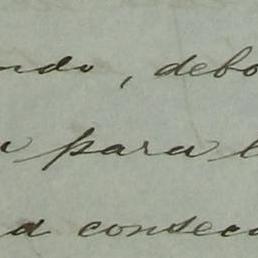 ndo, debo
a para l
d consecu